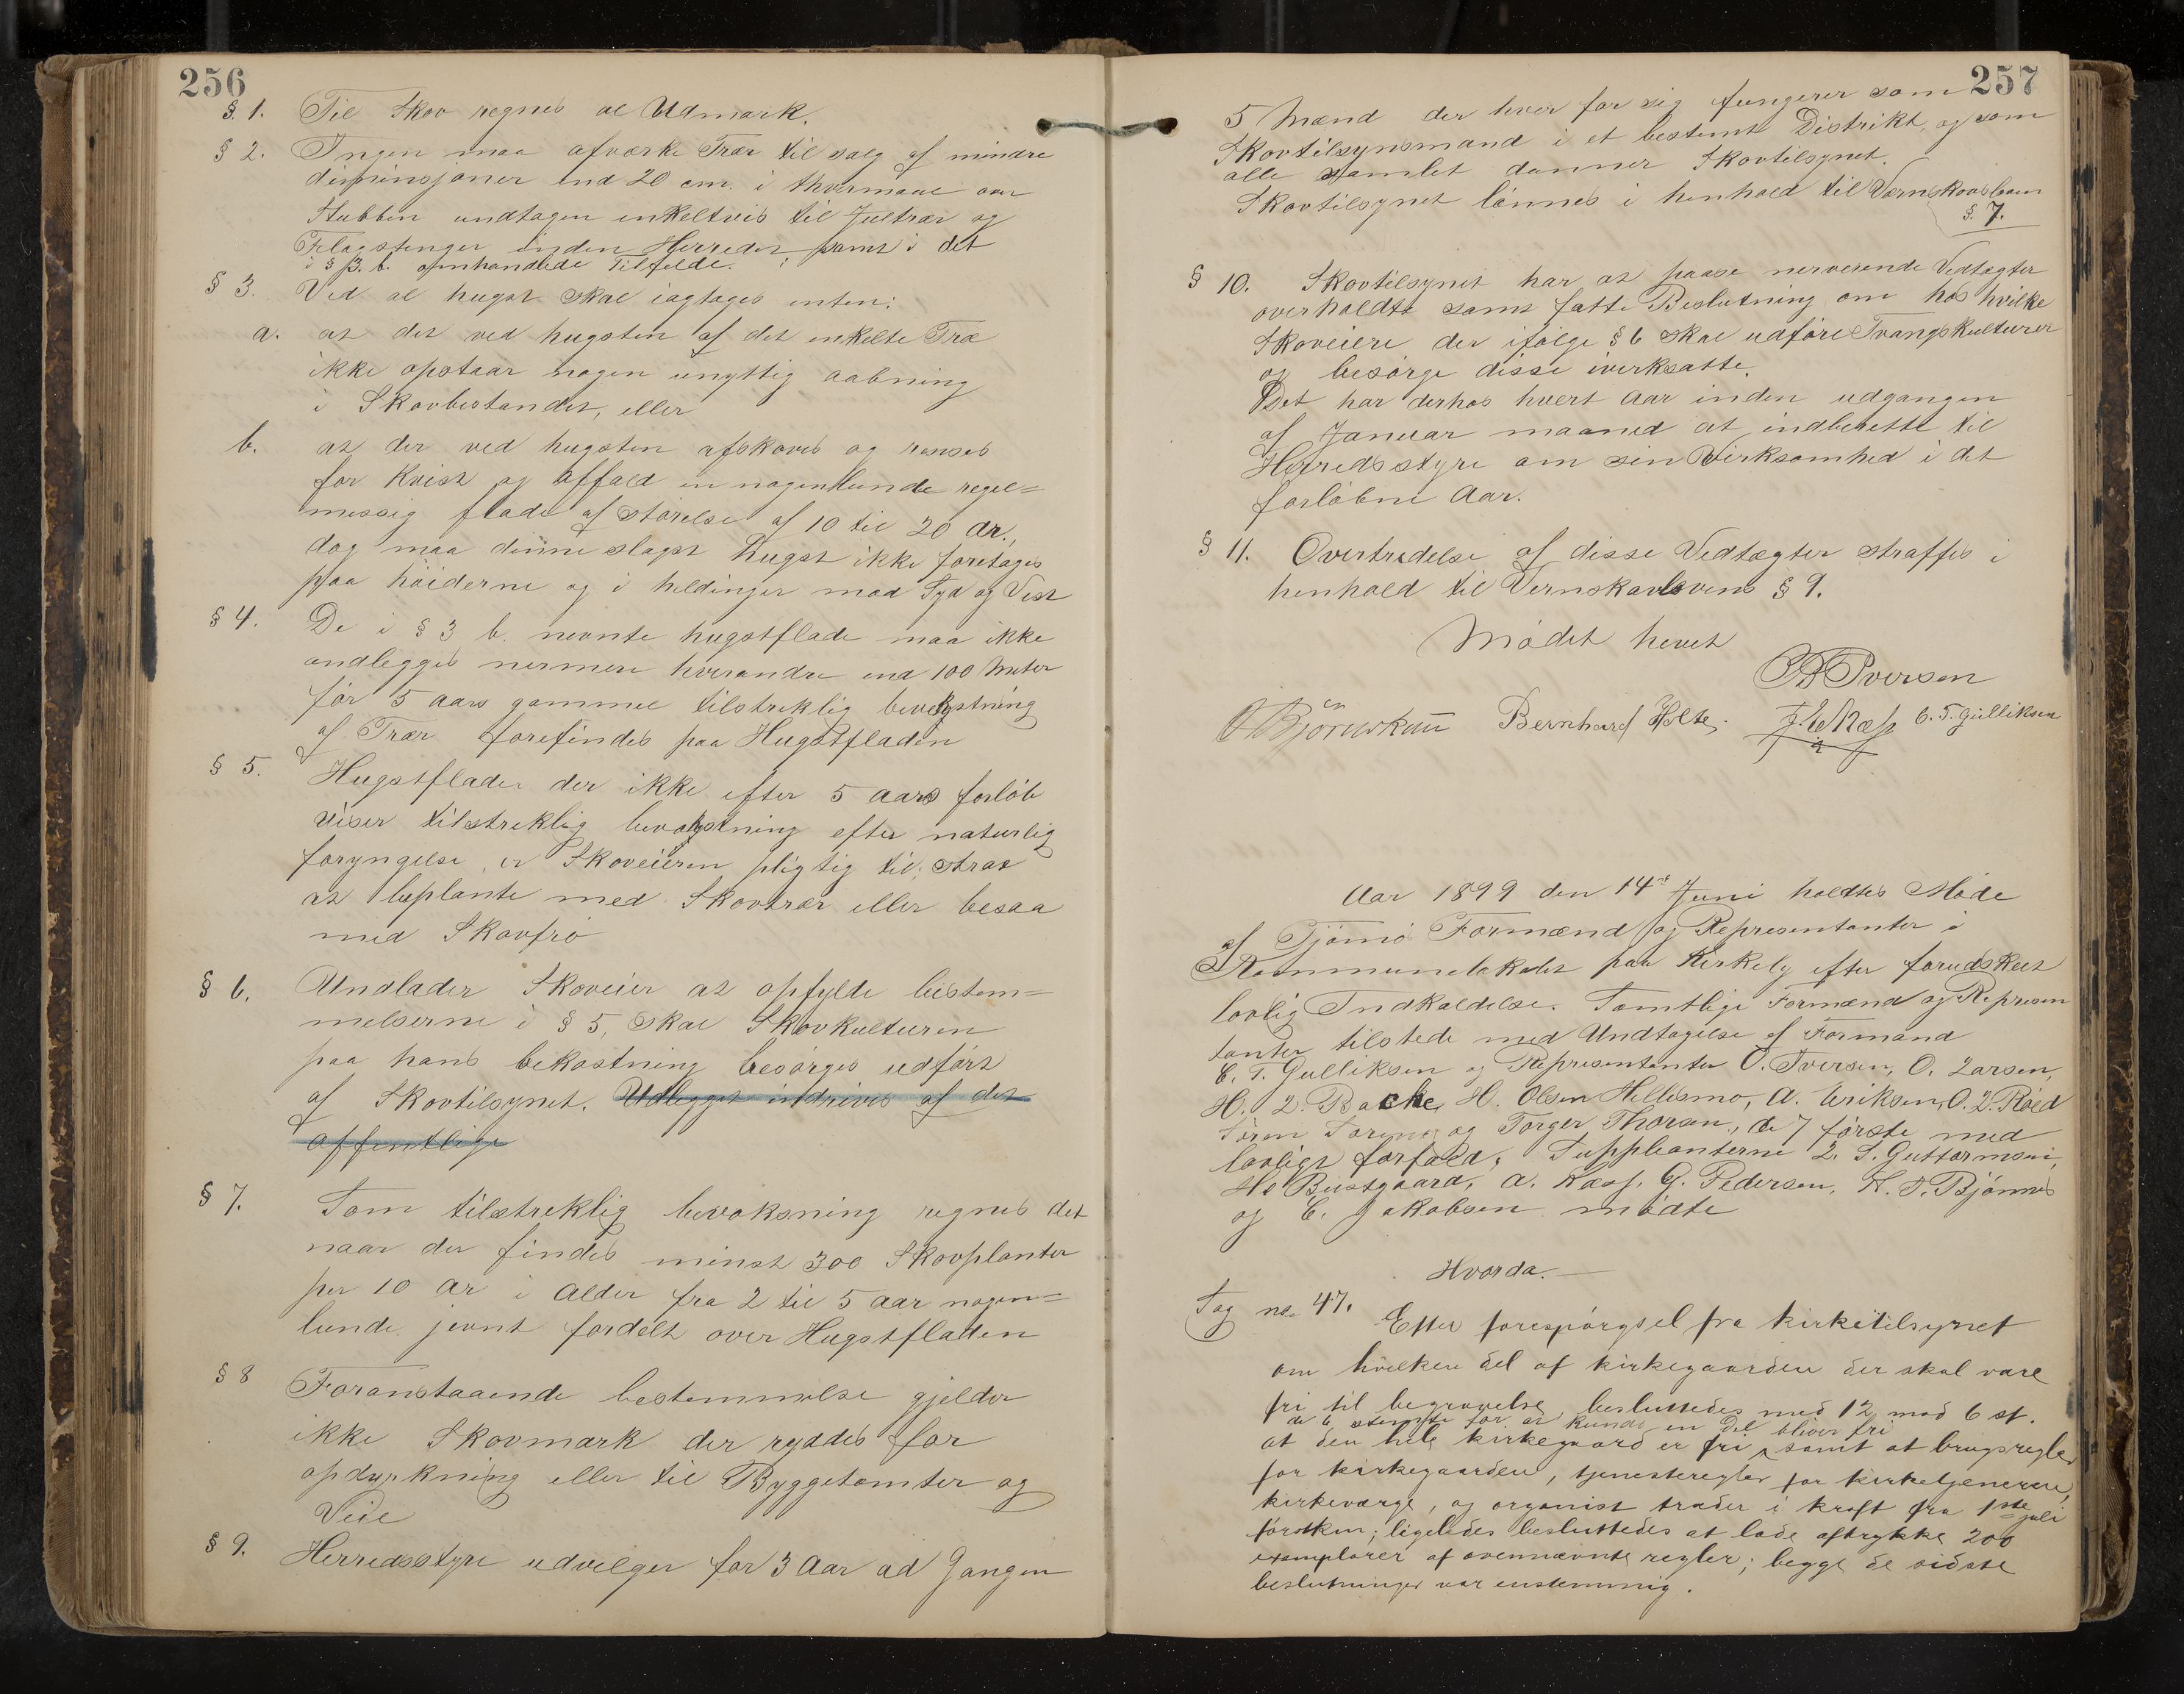 256
§. 1. Til Skov regnes al Udmark.
§ 2. Ingen maa afvirke Trær til salg af mindre
dimensjoner end 20 cm. i thvermaal over
Stubben undtagen enkeltvis til Juletrær og
Flagstenger inden Herredet, samt i det
i § 3. b. omhandlede Tilfelde.
§ 3. Ved al hugst skal iagtages enten:
a. at det ved hugsten af det enkelte Træ
ikke opstaar nogen unyttig aabning
i Skovbestandet, eller
b. at der ved hugsten afskoves og renses
for Kvist og Affald en nogenlunde regel=
messig flade af størelse af 10 til 20 ar,
dog maa denne slags hugst ikke foretages
paa høiderne og i heldinger mod Syd og Vest
§ 4. De i § 3 b. nevnte hugstflade maa ikke
andlegges nermere hverandre end 100 Meter
før 5 aars gammel tilstreklig bevoxstning
af Trær forefindes paa Hugstfladen
§ 5. Hugstflader der ikke efter 5 aars forløb
viser tilstreklig bevoxstning efter naturlig
foryngelse, er Skoveieren pligtig til; strax
at beplante med Skovtrær eller besaa
med Skovfrø
§ 6. Undlader Skoveier at opfylde bestem=
melserne i § 5, skal Skovkulturen
paa hans bekostning besørges udført
af Skovtilsynet. Udlegget indrives af det
offentlige
§ 7. Som tilstreklig bevoksning regnes det
naar der findes minst 300 Skovplanter
per 10 ar i Alder fra 2 til 5 aar nogen=
lunde jevnt fordelt over Hugstfladen
§ 8 Foranstaaende bestemmelse gjelder
ikke Skovmark der ryddes for
opdyrkning eller til Byggetomter og
Veie
§ 9. Herredsstyre udvelger for 3 Aar ad Gangen
257
5 Mænd der hver for sig fungerer som
Skovtilsynsmand i et bestemt Distrikt, og som
alle samlet danner Skovtilsynet.
Skovtilsynet lønnes i henhold til Vernskovloven
§. 7.
§ 10. Skovtilsynet har at paase nerverende Vedtægter
overholdte samt fatte Beslutning om hos hvilke
Skoveiere der ifølge § 6 skal udføre Tvangskulturer
og besørge disse iverksatte.
Det har derhos hvert Aar inden udgangen
af Januar maaned at indberette til
Herredsstyre om sin Virksomhed i det
forløbne Aar.
§ 11. Overtredelse af disse Vedtægter straffes i
henhold til Vernskovlovens § 9.
Mødet hevet
Iversen
Bjørnskau Bernhard Holte. Næss E. T. Gulliksen
Aar 1899 den 14de Juni holdtes Møde
af Tjømø Formænd og Representanter i
Kommunelokalet paa Kirkely efter forudskeet
lovlig Indkaldelse. Samtlige Formænd og Represen
tanter tilstede med Undtagelse af Formand
E. T. Gulliksen og Representanter O. Iversen, O. Larsen,
H. L. Backe, H. Olsen Hellesmo, A. Eriksen, O. L. Røed
Søren Sørens og Torger Thorsen, de 7 første med
lovligt forfald. Suppleanterne L. S. Guttormsen,
Bustgaard, A. Næss, G. Pedersen, H. T. Bjønnes
og E. Jakobsen mødte
Hvorda.
Sag no. 47. Efter forespørgsel fra kirketilsynet
om hvilken del af kirkegaarden der skal være
fri til begravelse, besluttedes med 12 mod 6 st.
de 6 stemte for at kunde en Del bliver fri
at den hele kirkegaard er fri samt at brugsregler
for kirkegaarden, tjenesteregler for kirketjeneren,
kirkeværge, og organist træder i kraft fra 1ste juli
førstkm; ligeledes besluttedes at lade aftrykke 200
exemplarer af ovennævnte regler; begge de sidste
beslutninger var enstemmig.